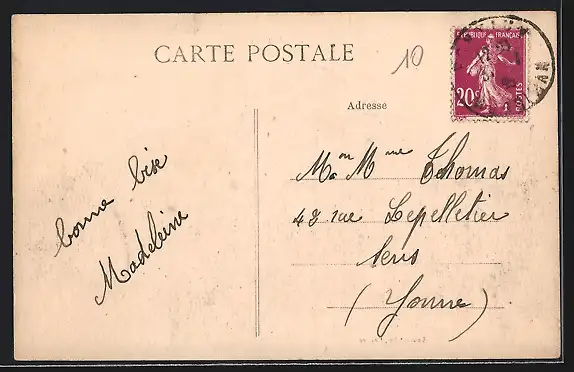 CARTE POSTALE
10
REPUBLIQUE FRANÇAISE
20c
POSTES
Adresse
bonne bise
Madeleine
Mon Mme Thomas
48 rue Lepelletier
Sens
(Yonne)